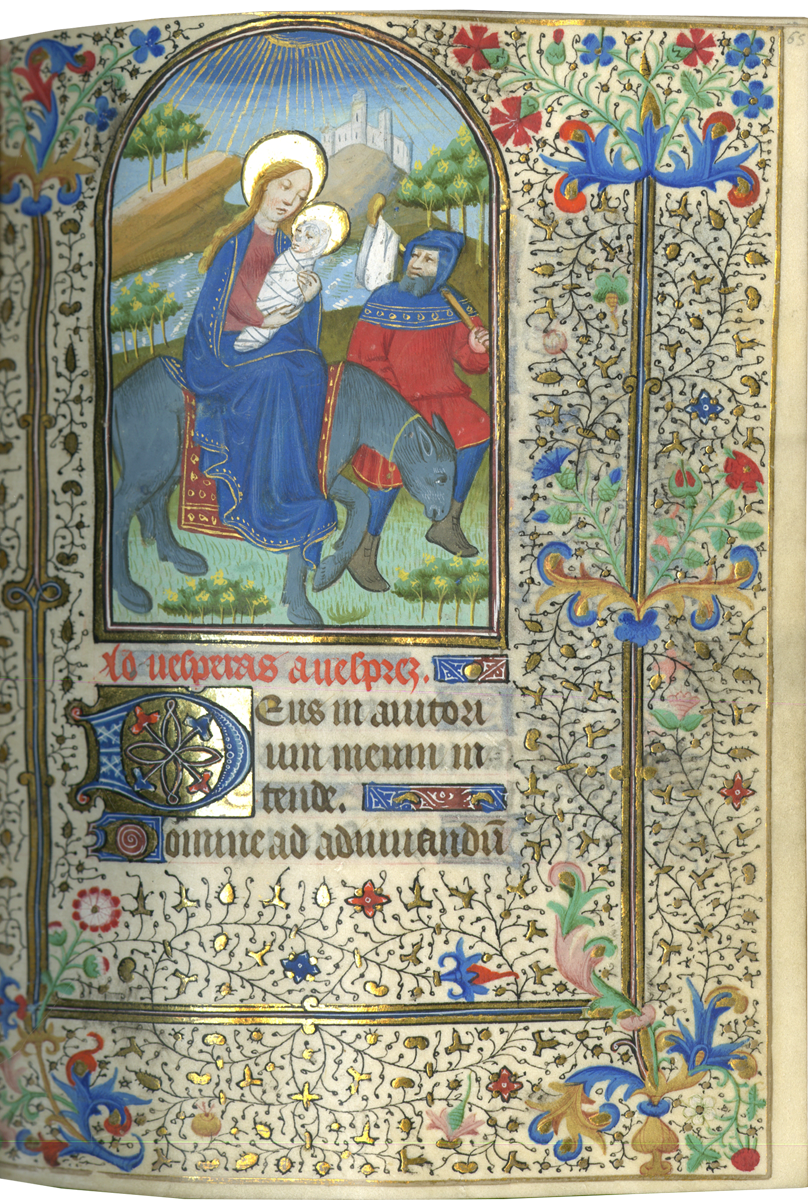 65
Ad uesperas a uesprez.
Deus in adiutori
um meum in
tende.
Domine ad adiuuandū